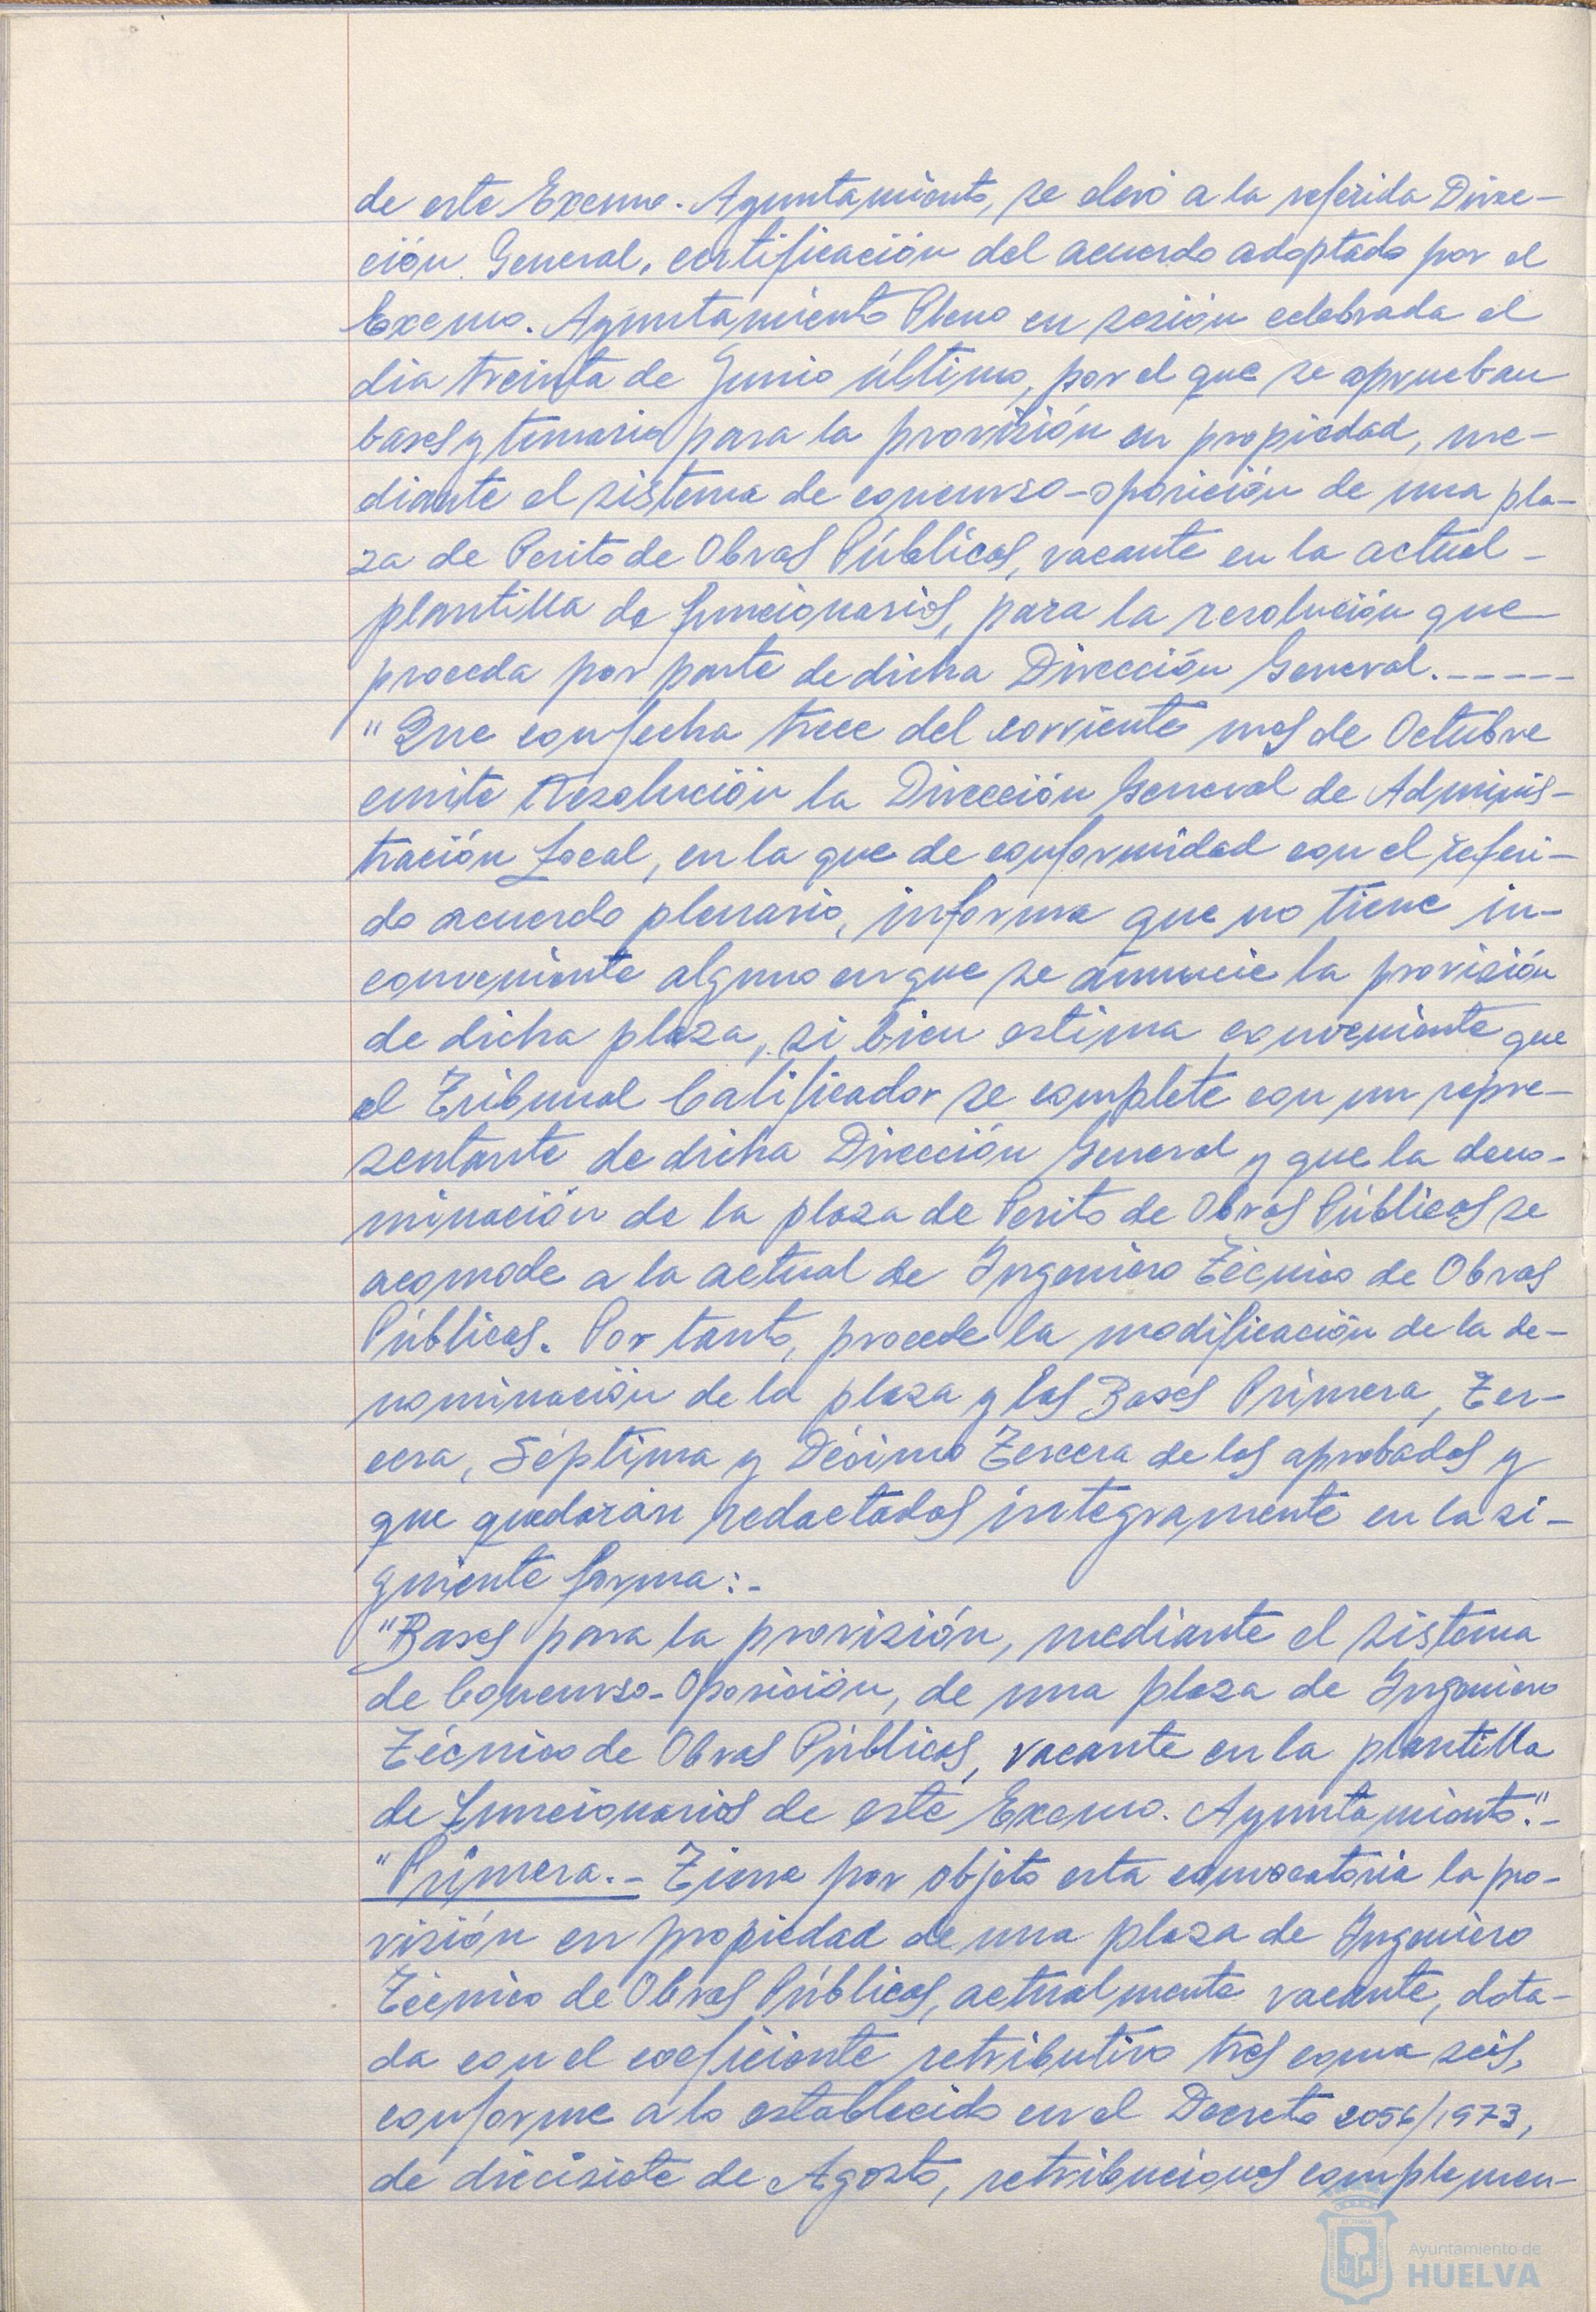 de este Excmo. Ayuntamiento, se elevó a la referida Direc-
ción General, certificación del acuerdo adoptado por el
Excmo. Ayuntamiento Pleno en sesión celebrada el
dia treinta de Junio último, por el que se aprueban
bases y temario para la provisión en propiedad, me-
diante el sistema de concurso-oposición de una pla-
za de Perito de Obras Públicas, vacante en la actual -
plantilla de funcionarios, para la resolución que
proceda por parte de dicha Dirección General.-----
"Que con fecha trece del corriente mes de Octubre
emite Resolución la Dirección General de Adminis-
tración Local, en la que de conformidad con el referi-
do acuerdo plenario, informa que no tiene in-
conveniente alguno en que se anuncie la provisión
de dicha plaza, si bien estima conveniente que
el Tribunal Calificador se complete con un repre-
sentante de dicha Dirección General y que la deno-
minación de la plaza de Perito de Obras Públicas se
acomode a la actual de Ingeniero Técnico de Obras
Públicas. Por tanto, procede la modificación de la de-
nominación de la plaza y las Bases Primera, Ter-
cera, Séptima y Décimo Tercera de las aprobadas y
que quedarán redactadas íntegramente en la si-
guiente forma:-
"Bases para la provisión, mediante el sistema
de Concurso-Oposición, de una plaza de Ingeniero
Técnico de Obras Públicas, vacante en la plantilla
de Funcionarios de este Excmo. Ayuntamiento".-
"Primera.- Tiene por objeto esta convocatoria la pro-
visión en propiedad de una plaza de Ingeniero
Técnico de Obras Públicas, actualmente vacante, dota-
da con el coeficiente retributivo tres coma seis,
conforme a lo establecido en el Decreto 2056/1973,
de diecisiete de Agosto, retribuciones complemen-
Ayuntamiento de
HUELVA